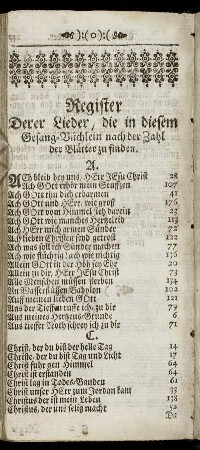 ):(0):(
Register
Derer Lieder, die in diesem
Gesang-Büchlein nach der Zahl
der Blätter zu finden.
A.
ACh bleib bey uns, HErr JEsu Christ 28
Ach GOtt erhör mein Seufftzen 107
Ach GOtt thu dich erbarmen 41
Ach GOtt und HErr, wie groß 176
Ach GOtt vom Himmel sieh darein 23
Ach GOtt wie manches Hertzeleid 113
Ach HErr mich armen Sünder 72
Ach lieben Christen seyd getrost 122
Ach was soll ich Sünder machen 77
Ach wie flüchtig! ach wie nichtig 136
Allein GOtt in der Höh sey Ehr 20
Allein zu dir, HErr JEsu Christ 73
Alle Menschen müssen sterben 134
An Wasserflüssen Babylon 102
Auff meinen lieben GOtt 121
Aus der Tieffen ruffe ich zu dir 79
Aus meines Hertzens Grunde 6
Aus tieffer Noth schrey ich zu dir 71
C.
Christ, der du bist der helle Tag 14
Christe, der du bist Tag und Licht 17
Christ fuhr gen Himmel 64
Christ ist erstanden 64
Christ lag in Todes-Banden 61
Christ unser HErr zum Jordan kam 33
Christus der ist mein Leben 138
Christus, der uns selig macht 52
Da